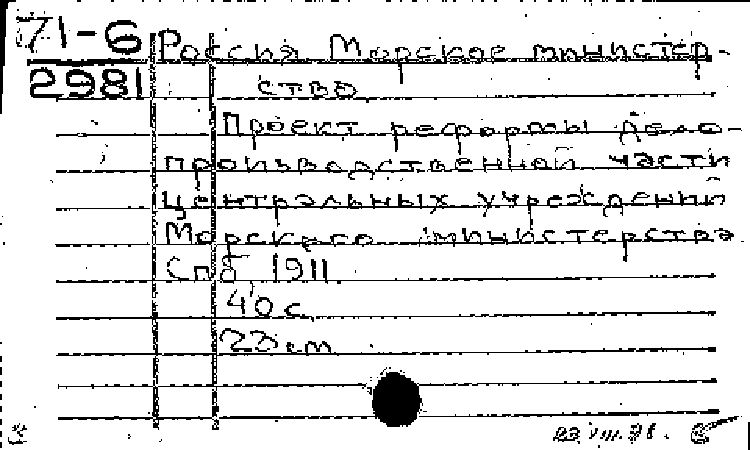 71-6
2981
Россия Морское министер-
ство
Проект реформы дело-
производственной части
центральных учреждений
Морского министерства
Спб, 1911
40 с.
22 cm